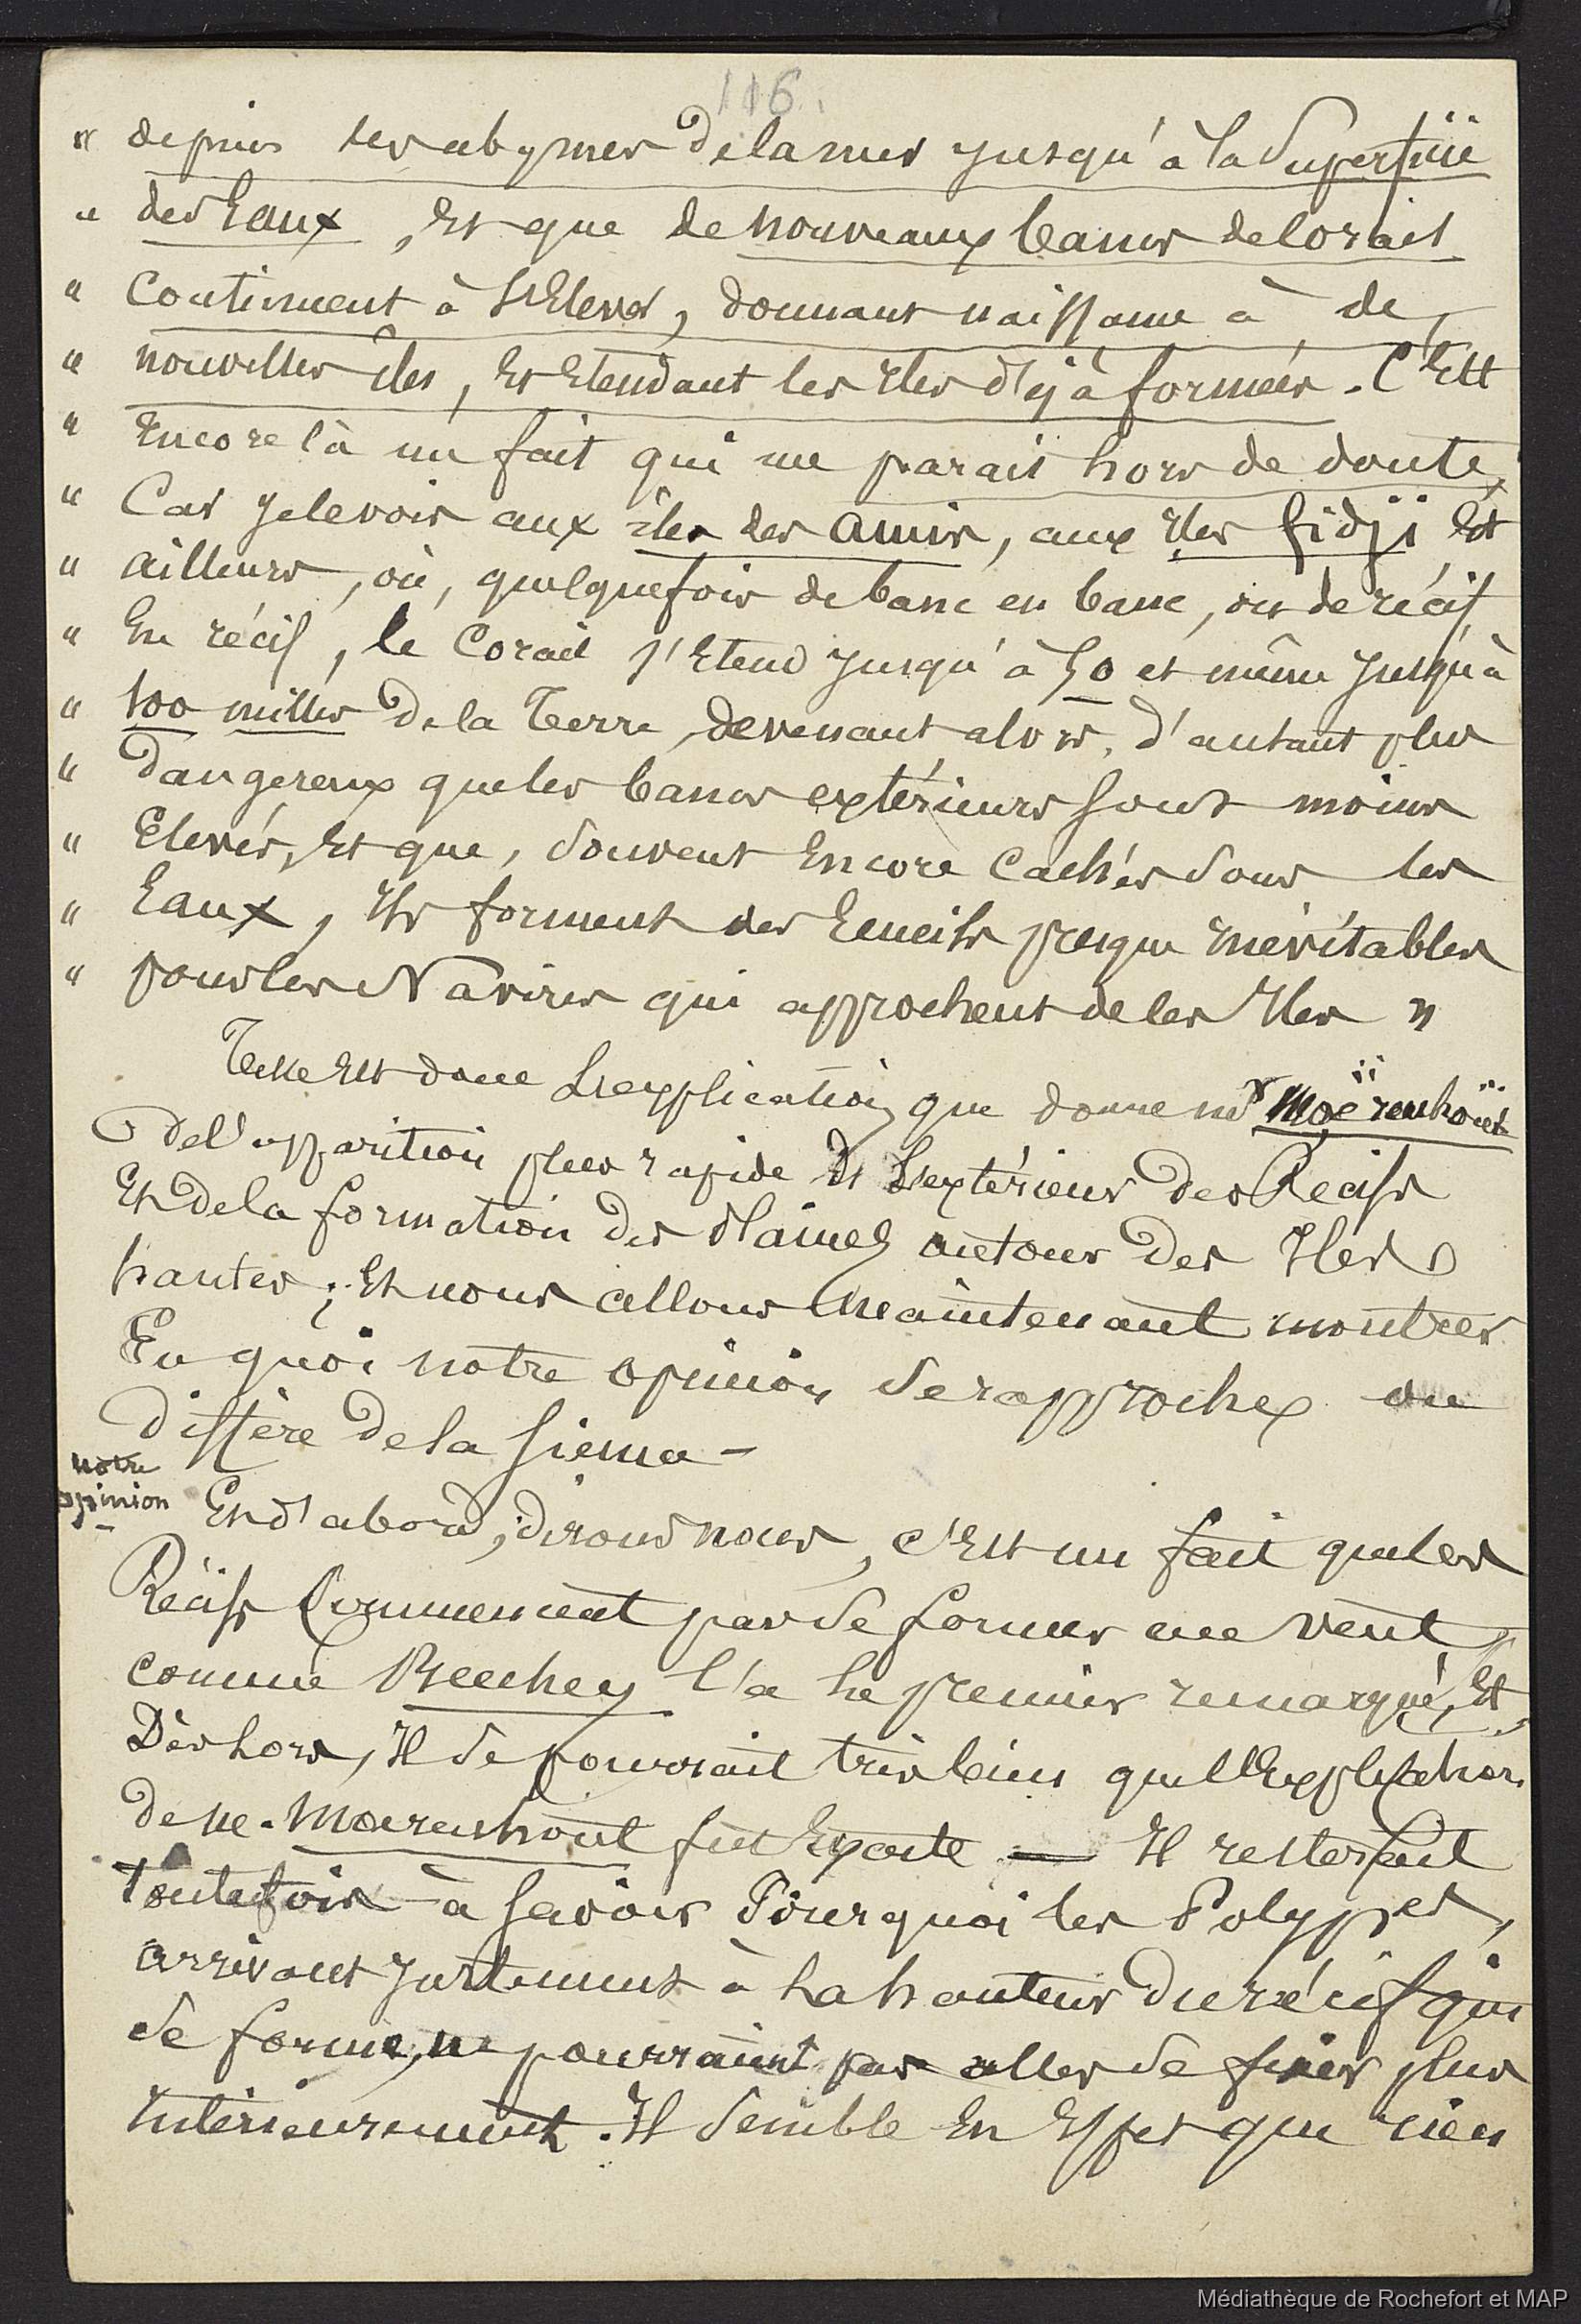 116.
" depuis les abymes de la mer jusqu'à la Superficie
" des Eaux, Et que de nouveaux bancs de corail
" Continuent à s'Elever, donnant naissance à de
" nouvelles îles, Et Etendant les Iles déjà formées. C'Est
" Encore là un fait qui me parait hors de doute,
" Car je le vois aux îles des Amis, aux Iles fidji Et
" ailleurs, où, quelquefois de banc en banc, ou de récif
" En récif, le Corail s'Etend jusqu'à 50 et même jusqu'à
" 100 milles de la Terre, devenant alors, d'autant plus
" Dangereux que les bancs extérieurs sont moins
" Elevés, Et que, Souvent Encore Cachés Sous les
" Eaux, Ils forment des Ecueils presque Inévitables
" pour les Navires qui approchent de ces Iles "
Telle Est donc L'explication que donne Mr Moërenhoüt
De l'apparition plus rapide de L'extérieur des Récifs
Et de la formation des Plaines autour Des Iles
hautes; Et nous allons Maintenant montrer
En quoi notre opinion Se rapproche ou
Diffère de la Sienne -
notre
opinion
-
Et d'abord, dirons nous, c'Est un fait que les
Récifs Commencent par Se former au vent,
comme Beechey l'a le premier remarqué, Et,
Dès lors, Il Se pourrait très bien que l'Explication
de M. Moerenhout fut Exacte — Il resterait
Toutefois à Savoir Pourquoi les Polypes,
arrivant justement à La hauteur Du récif qui
Se forme, ne pourraient pas aller Se fixer plus
Intérieurement. Il Semble En Effet que rien
Médiathèque de Rochefort et MAP